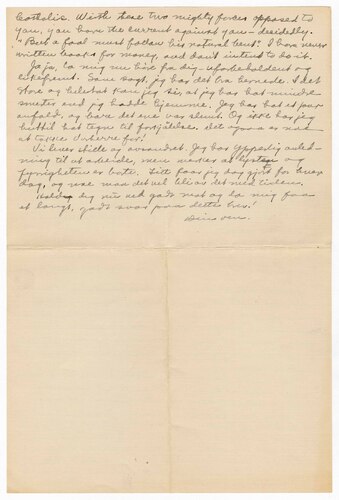 Catholic. With these two mighty forces opposed to
you, you have the current against you — decidedly.
"But a fool must follow his natural bent." I have never
written books for money, and don't intend to do it.
Ja ja, la mig nu høre fra dig — uforbeholdent og
likefrem. Som sagt, jeg har det bra hernede. I det
store og hele kan jeg si, at jeg har hat mindre
smerter end jeg hadde hjemme. Jeg har hat et par
anfald, og bare det ene var slemt. Og ikke har jeg
hittil hat tegn til forkjølelse. Det ogsaa er noe
at takke Vorherre for!
Vi lever stille og avsondret. Jeg har ypperlig anled-
ning til at arbeide, men merker at lysten og
fyrigheten er borte. Litt faar jeg dog gjort for hver
dag, og noe maa det vel bli av det med tiden.
dig nu ved godt mot og la mig faa
et langt, godt svar paa dette brev!
Din ven.